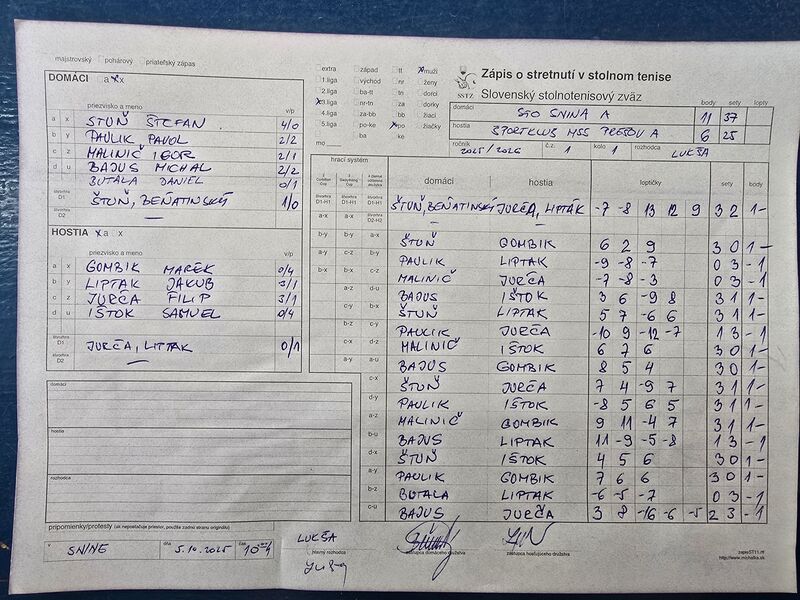 majstrovský pohárový priateľský zápas
DOMÁCI a x
priezvisko a meno v/p
a x STUŇ ŠTEFAN 4/0
b y PAULIK PAVOL 2/2
c z MALINIČ IGOR 2/1
d u BAJUS MICHAL 2/2
BUTALA DANIEL 0/1
štvorhra D1 ŠTUŇ, BEŇATINSKÝ 1/0
štvorhra D2 —
HOSTIA x a x
priezvisko a meno v/p
a x GOMBIK MAREK 0/4
b y LIPTAK JAKUB 3/1
c z JURČA FILIP 3/1
d u IŠTOK SAMUEL 0/4
štvorhra D1 JURČA, LIPTAK 0/1
štvorhra D2 —
domáci
hostia
rozhodca
pripomienky/protesty (ak nepostačuje priestor, použite zadnú stranu originálu)
v SNINE dňa 5.10.2025 čas
LUKŠA
hlavný rozhodca
zástupca domáceho družstva
zástupca hosťujúceho družstva
extra západ tt muži
1.liga východ nr ženy
2.liga ba-tt tn dorci
3.liga nr-tn za dorky
4.liga za-bb bb žiaci
5.liga po-ke po žiačky
mo ba ke
SSTZ
Zápis o stretnutí v stolnom tenise
Slovenský stolnotenisový zväz
body sety lopty
domáci STO SNINA A 11 37
hostia ŠPORTKLUB MSS PREŠOV A 6 25
ročník 2025/2026 č.z. 1 kolo 1 rozhodca LUKŠA
hrací systém domáci hostia loptičky sety body
štvorhra D1-H1 štvorhra D1-H1 štvorhra D1-H1 ŠTUŇ, BEŇATINSKÝ JURČA, LIPTÁK -7 -8 13 12 9 3 2 1 -
a-x a-x štvorhra D2-H2
b-y b-y a-x ŠTUŇ GOMBIK 6 2 9 3 0 1 -
a-y c-z b-y PAULIK LIPTAK -9 -8 -7 0 3 - 1
b-x b-x c-z MALINIČ JURČA -7 -8 -3 0 3 - 1
a-z d-u BAJUS IŠTOK 3 6 -9 8 3 1 1 -
c-y b-x ŠTUŇ LIPTAK 5 7 -6 6 3 1 1 -
b-z c-y PAULIK JURČA -10 9 -12 -7 1 3 - 1
c-x d-z MALINIČ IŠTOK 6 7 6 3 0 1 -
a-y a-u BAJUS GOMBIK 8 5 4 3 0 1 -
c-x ŠTUŇ JURČA 7 4 -9 7 3 1 1 -
d-y PAULIK IŠTOK -8 5 6 5 3 1 1 -
a-z MALINIČ GOMBIK 9 11 -4 7 3 1 1 -
b-u BAJUS LIPTAK 11 -9 -5 -8 1 3 - 1
d-x ŠTUŇ IŠTOK 4 5 6 3 0 1 -
a-y PAULIK GOMBIK 7 6 6 3 0 1 -
b-z BUTALA LIPTAK -6 -5 -7 0 3 - 1
c-u BAJUS JURČA 3 8 -16 -6 -5 2 3 - 1
zapisST11.rtf
http://www.michalka.sk